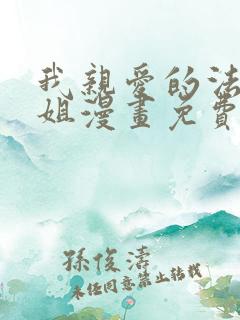 我親愛的法
姐漫畫免費
孫俊濤
未經同意禁止轉載